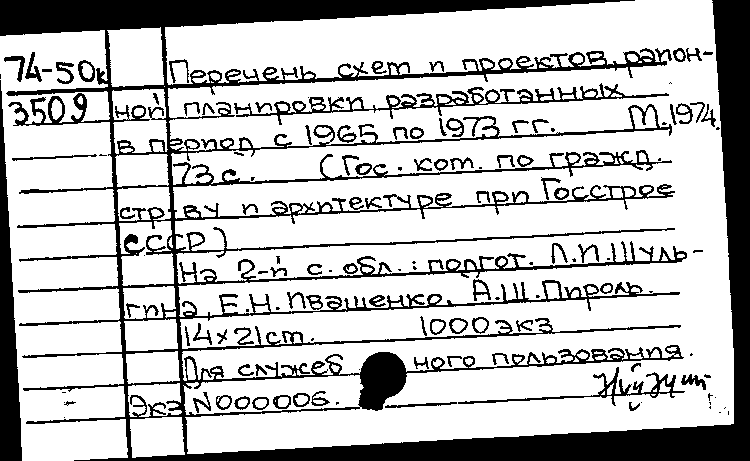 74-50к Перечень схем и проектов, район-
3509 ной планировки, разработанных
в период с 1965 по 1973 гг. М., 1974.
73 с. (Гос. ком. по гражд.
стр-ву и архитектуре при Госстрое
СССР)
На 2-й с. обл.: подгот. Л.П.Шуль-
гина, Е.Н. Иващенко, А.Ш.Пироль.
14×21см. 1000экз
Для служебного пользования.
Экз.N000006.